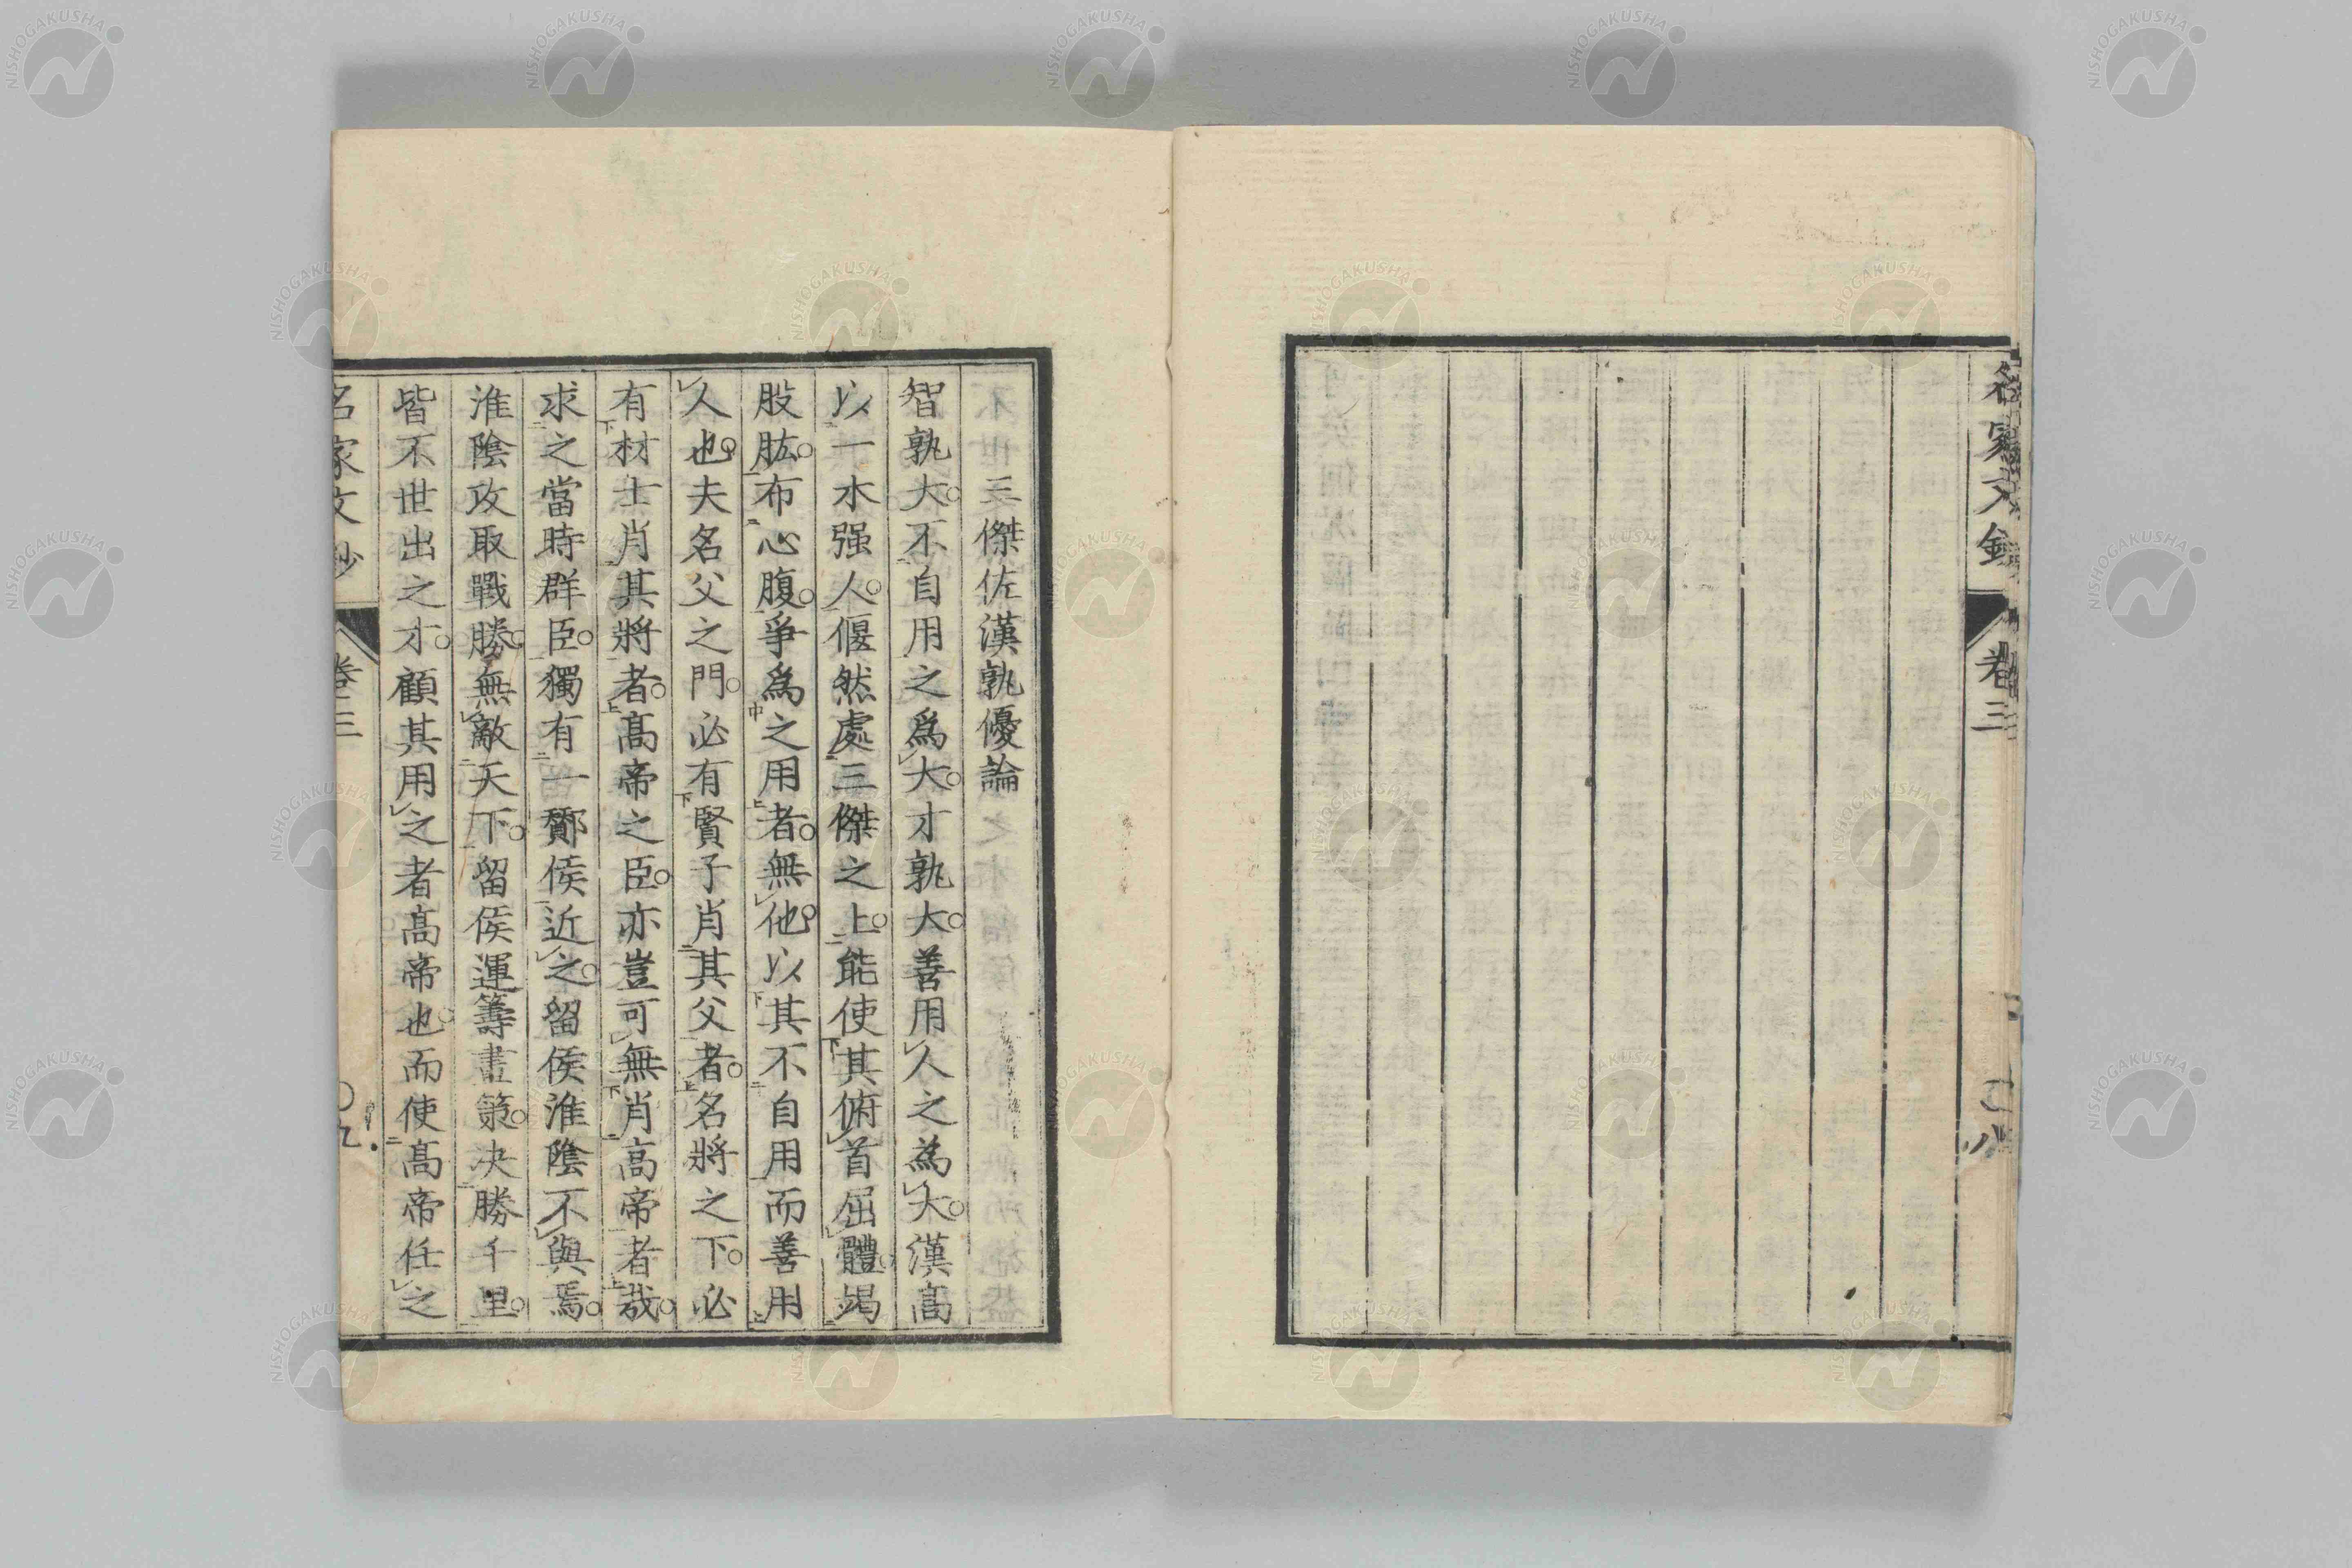 名家文鈔
卷三
三傑佐漢孰優論
智孰大不自用之爲大才孰大善用人之為大漢高
以一木强人偃然處三傑之上能使其俯首屈體竭
股肱布心腹爭爲之用者無他以其不自用而善用
人也夫名父之門必有賢子肖其父者名將之下必
有材士肖其將者高帝之臣亦豈可無肖高帝者哉
求之當時群臣獨有一酇侯近之留侯淮陰不與焉
淮陰攻取戰勝無敵天下留侯運籌畫策決勝千里
皆不世出之才顧其用之者高帝也而使高帝任之
名家文鈔
卷三